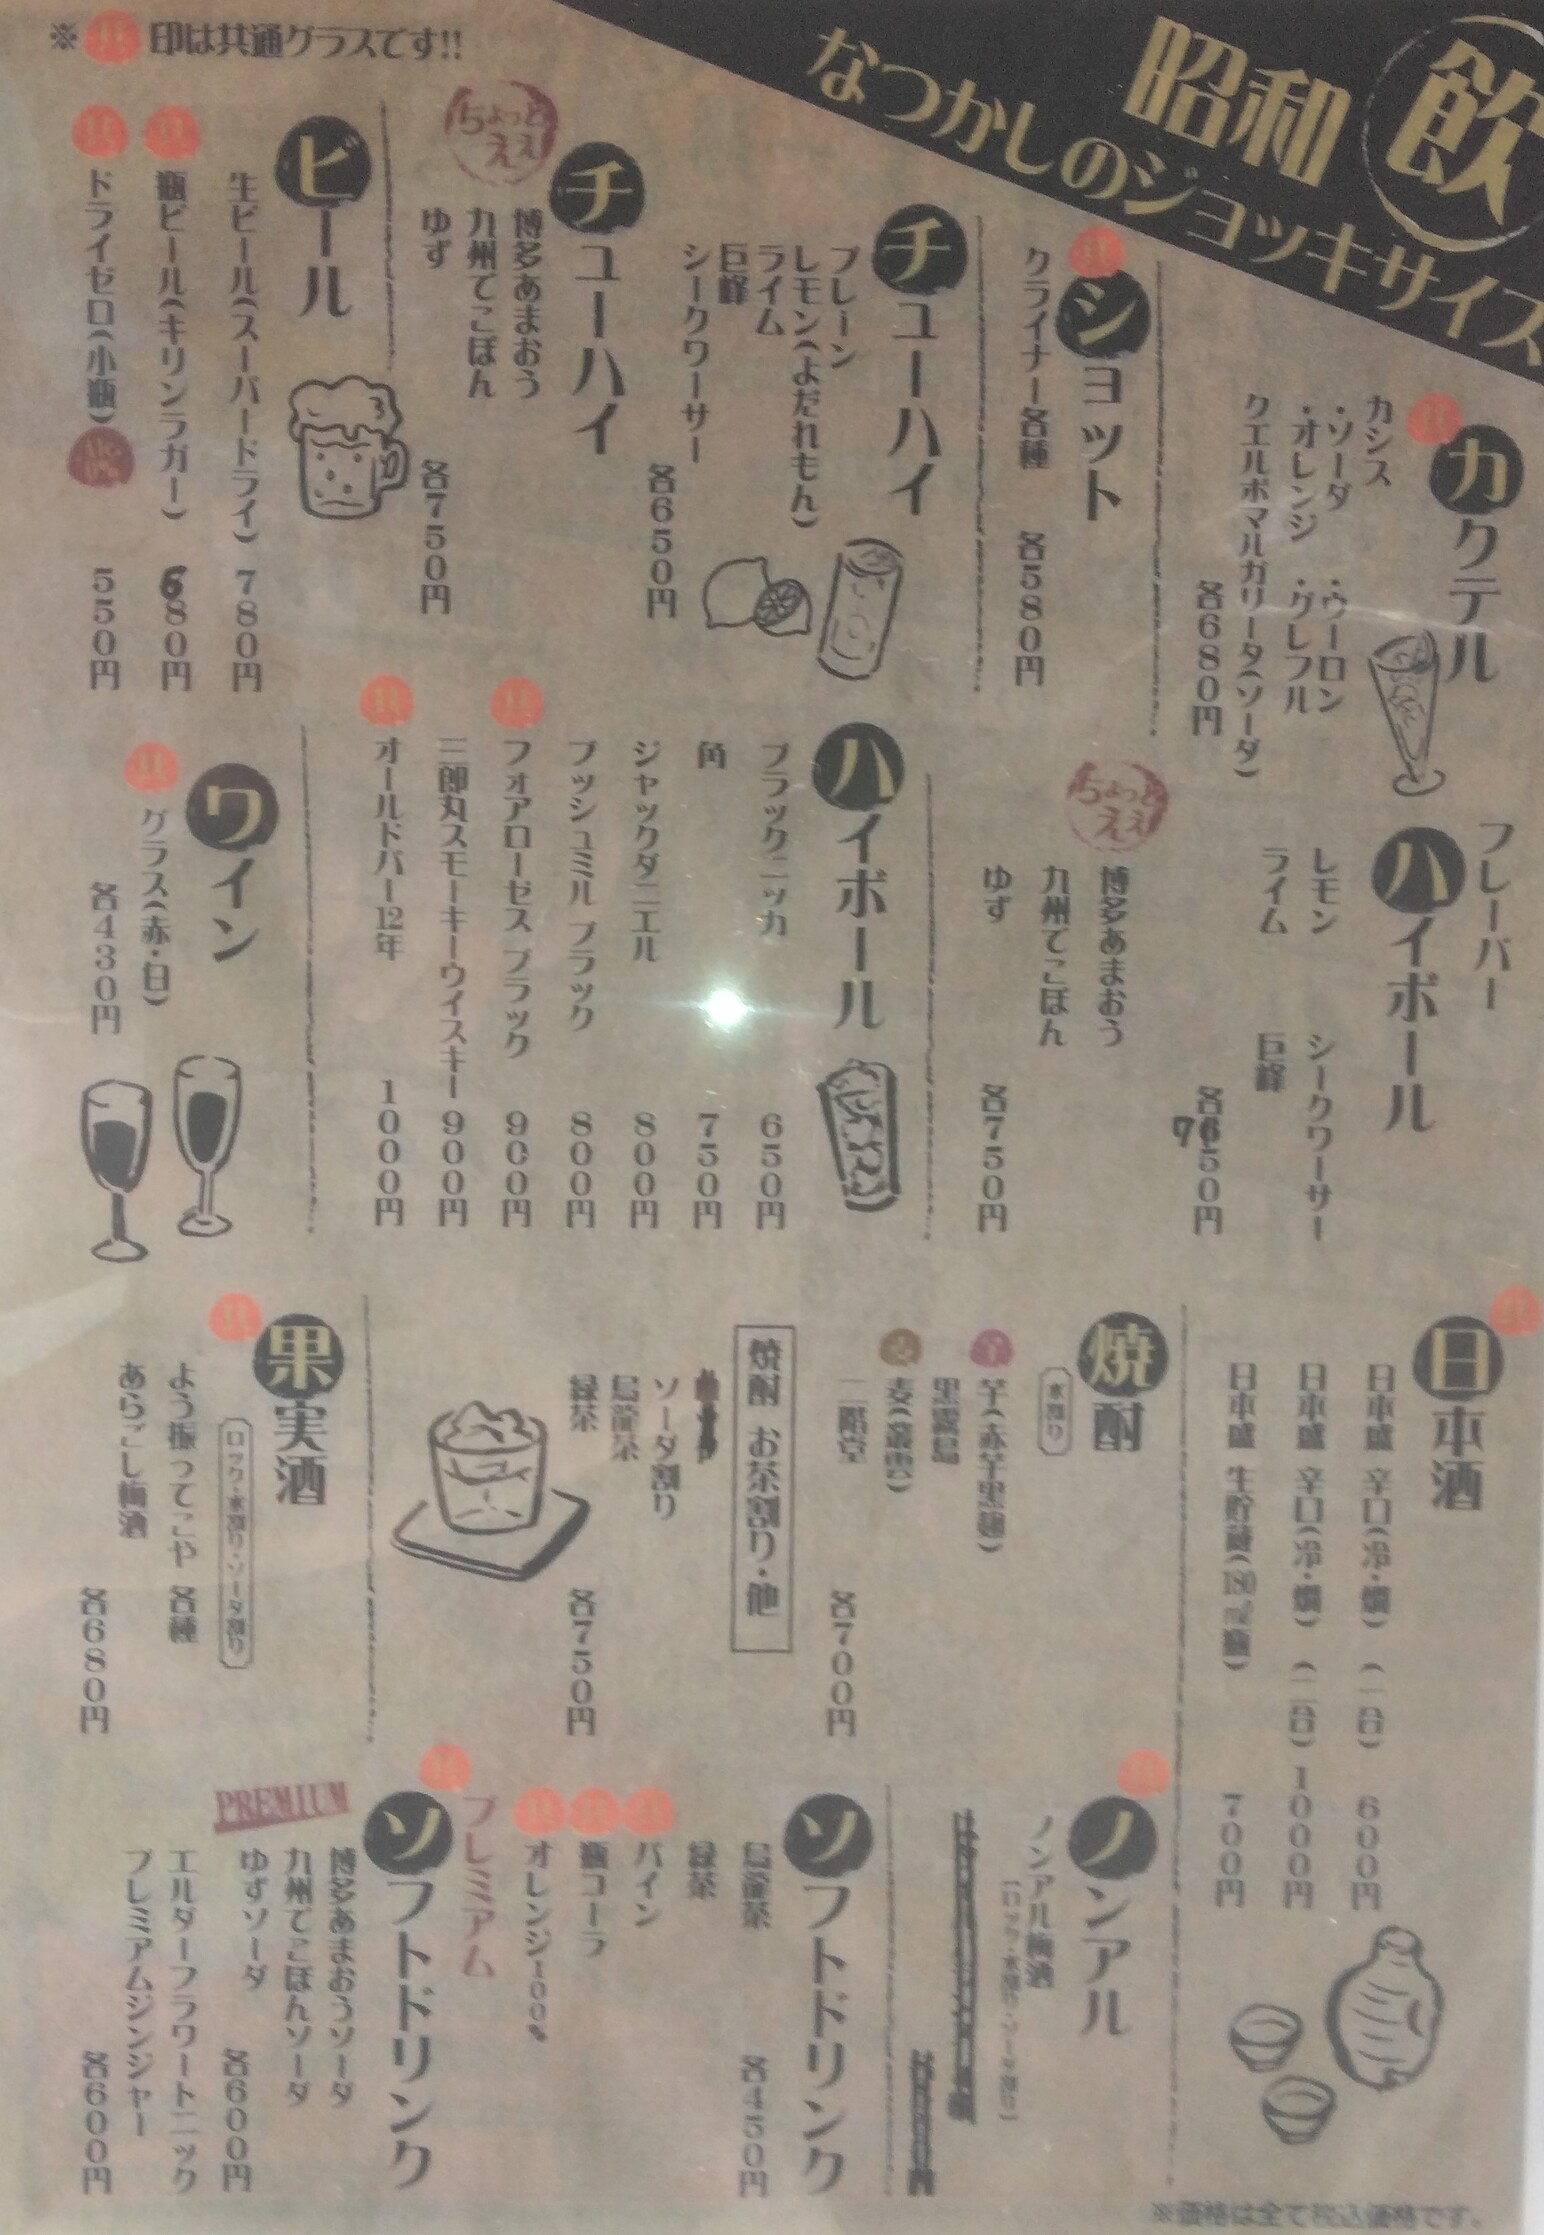 飲
昭和
なつかしのジョッキサイズ
※共印は共通グラスです!!
共
カクテル
カシス
・ソーダ ・ウーロン
・オレンジ ・グレフル
クエルボマルガリータ(ソーダ)
各680円
共
ショット
クライナー各種 各580円
チューハイ
プレーン
レモン(よだれもん)
ライム
巨峰
シークワーサー
各650円
ちょっとええ
チューハイ
博多あまおう
九州でこぽん
ゆず
各750円
ビール
生ビール(スーパードライ) 780円
共 瓶ビール(キリンラガー) 680円
共 ドライゼロ(小瓶) Alc.0% 550円
フレーバー
ハイボール
レモン シークワーサー
ライム 巨峰
各750円
ちょっとええ
博多あまおう
九州でこぽん
ゆず
各750円
ハイボール
ブラックニッカ 650円
角 750円
ジャックダニエル 800円
ブッシュミル ブラック 800円
共 フォアローゼス ブラック 900円
三郎丸スモーキーウイスキー 900円
共 オールドパー12年 1000円
ワイン
共 グラス(赤・白)
各430円
共
日本酒
日本盛 辛口(冷・燗) (一合) 600円
日本盛 辛口(冷・燗) (二合) 1000円
日本盛 生貯蔵(180㎖瓶) 700円
焼酎
水割り
芋 芋(赤芋黒麹)
黒霧島
麦(叢雲)
二階堂
各700円
焼酎 お茶割り・他
ソーダ割り
烏龍茶
緑茶
各750円
共
果実酒
ロック・水割り・ソーダ割り
よう振ってこや 各種
あらごし梅酒
各680円
共
ノンアル
ノンアル梅酒
(ロック・水割り・ソーダ割り)
ソフトドリンク
烏龍茶
緑茶
共 パイン
共 瓶コーラ
共 オレンジ100%
各450円
共
プレミアム
ソフトドリンク
PREMIUM
博多あまおうソーダ
九州でこぽんソーダ
ゆずソーダ
各600円
エルダーフラワートニック
プレミアムジンジャー
各600円
※価格は全て税込価格です。